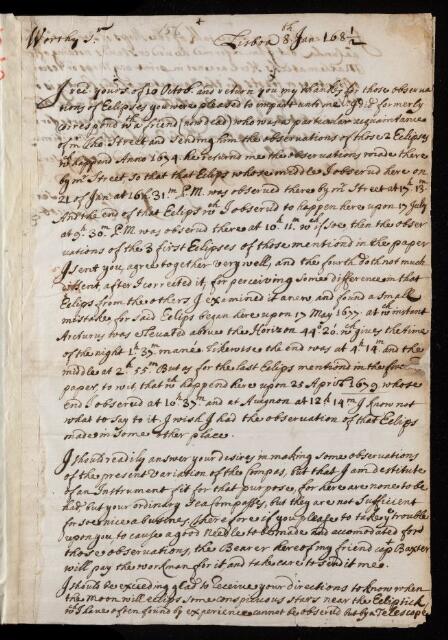 Worthy Sr. Lisbon 8th Jan. 168½
I rec'd yours of 10 Octob. and return you my thanks for those observa
tions of Eclipses you were pleased to impart unto me. I did formerly
correspond wth a friend (now dead) who was a particular acquaintance
of mr Tho: Street and sending him the observations of those 2 Eclipses
happend Anno 1674 he returnd me the observations made there
by mr Street so that that Eclips whose middle I observd here on
21 of Jan at 16h. 31m P.M. was observed there by mr Street at 17h 13
And the end of that Eclips wch I observd to happen here upon 17 July
at 9h. 30m P.M was observd there at 10h. 11m of so then the obser
vations of the 3 first Eclipses of those mentiond in the paper
I sent you, agree together very well, and the fourth doth not much
, after I corrected it, for perceiving some difference in that
Eclips from the others I examined it anew and found a small
mistake for said Eclips began here upon 17 May 1677. at wch instant
Arcturus was Elevated above the Horizon 44°20. wch gives the time
of the night 1h. 37m mane. Likewise the end was at 4h. 14m and the
middle at 2h. 55m But as for the last Eclips mentiond in the
paper, to wit that wch happend here upon 25 Apr 1679. whose
end I observed at 10h. 37m and at Avignon at 12h 14m I know not
what to say to it. I wish I had the observation of that Eclips
made in some other place.
I should readily answer your desires in making some observations
of the present variation of the Compas, but that I am destitute
of an Instrument fit for that purpose, for here are none to be
had but your ordinary Sea Compasses, but they are not Sufficient
for so nice a busines, therefore if you please to take ye trouble
upon you to cause a good Needle to be made and accomodated for
those observations, the Bearer hereof my friend cap Baxter
will pay the workman for it and take care to send it me.
I should be exceeding glad to receive your directions to know when
the Moon will eclips some conspicuous stars near the Ecliptick
I have often found by experience cannot be observed but by a Telescope